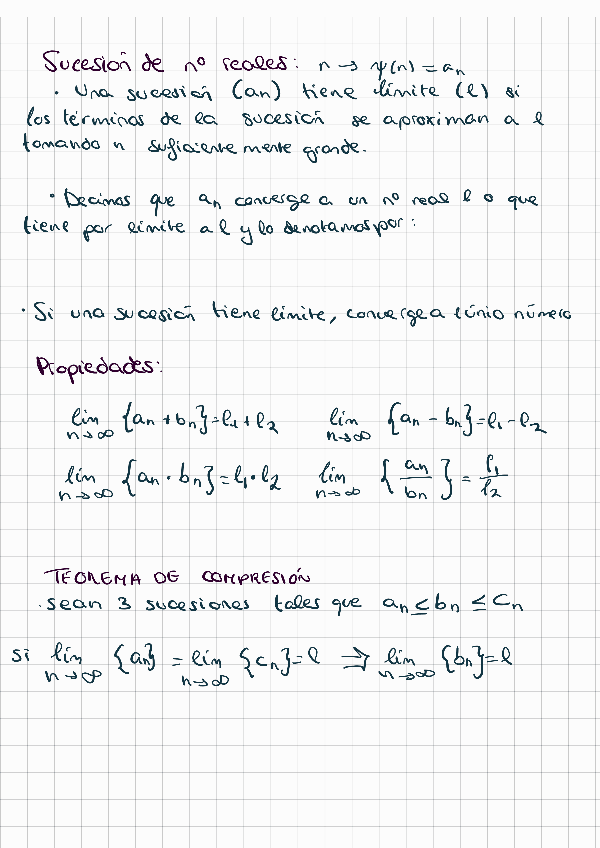 Sucesión de nº reales: n → ψ(n) = aₙ
· Una sucesión (aₙ) tiene límite (l) si
los términos de la sucesión se aproximan a l
tomando n suficientemente grande.
· Decimos que aₙ converge a un nº real l o que
tiene por límite a l y lo denotamos por:
· Si una sucesión tiene límite, converge a 1 único número
Propiedades:
lim n→∞ {aₙ + bₙ} = l₁ + l₂ lim n→∞ {aₙ - bₙ} = l₁ - l₂
lim n→∞ {aₙ · bₙ} = l₁ · l₂ lim n→∞ {aₙ/bₙ} = l₁/l₂
TEOREMA DE COMPRESIÓN
· sean 3 sucesiones tales que aₙ ≤ bₙ ≤ cₙ
si lim n→∞ {aₙ} = lim n→∞ {cₙ} = l ⇒ lim n→∞ {bₙ} = l